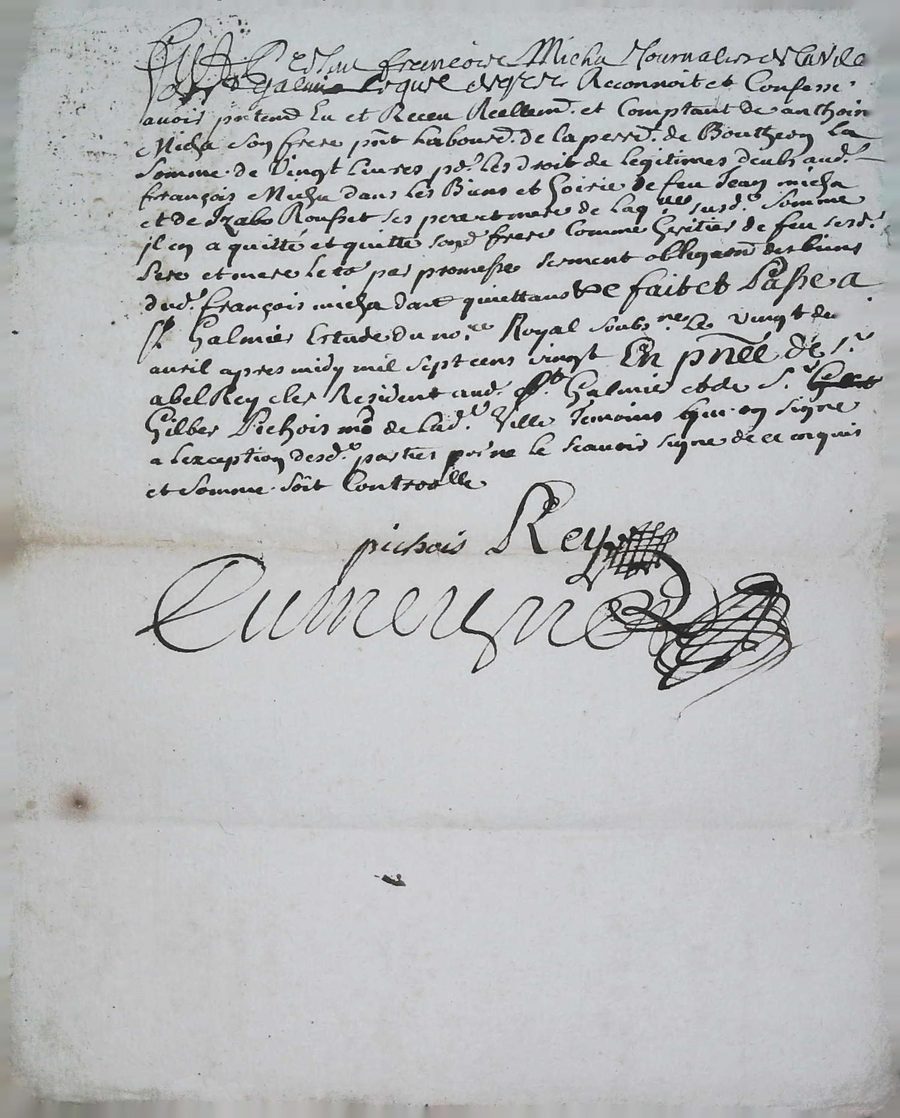 francoise Micha Journalier de la ville
St Galmier Lequel de gré Reconnoit et Confesse
avoir prntemd Eu et Receu Reellemd et Comptant de anthoine
Micha Son frere pnt Laboured de la perred de Boutheon La
Somme de Vingt Livres pr les droit de legitimes deubs aud.
françois Micha dans les Biens et hoirie de feu Jean micha
et de Izabo Rousset ses pere et mere de laqlle susd. Somme
il en a quitté et quitte sond frere Comme heritier de feu sesd.
Pere et mere par promesse serment obligaon des biens
dud. françois micha dont quittance fait et Passe a
St Galmier Estude du nore Royal Soubsne Le Vingt du
avril apres midy mil sept cens vingt En pñce de Sr
abel Rey clerc Resident aud. St Galmier et de Sr
Gilber Pichois md de lad. Ville Temoins qui on signe
a lexception desd. parties por ne le scavoir signe de ce enquis
et Somme Soit Controolle
pichois Rey
Dumeynes